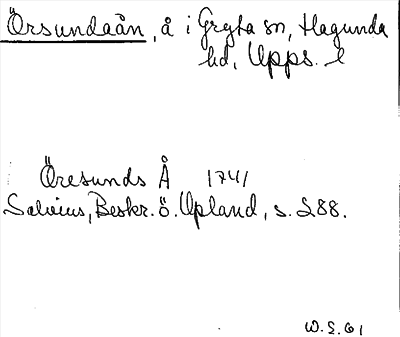 Örsundaån, å i Gryta sn, Hagunda
hd, Upps. l
Öresunds Å 1741
Salvius, Beskr. ö. Upland, s. 288.
W.S. 61